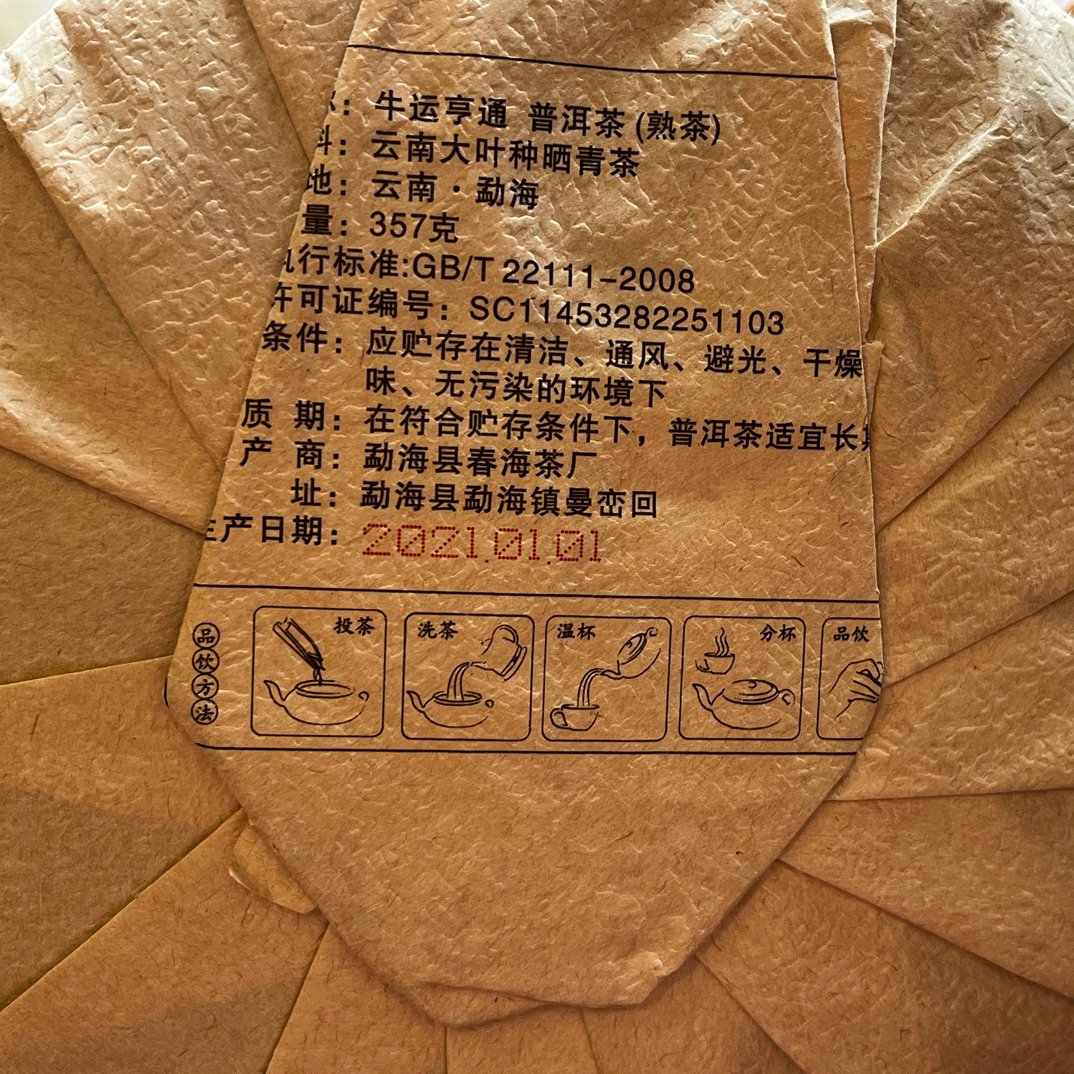 ：牛运亨通 普洱茶 (熟茶)
料：云南大叶种晒青茶
地：云南·勐海
量：357克
执行标准:GB/T 22111-2008
许可证编号：SC11453282251103
条件：应贮存在清洁、通风、避光、干燥
味、无污染的环境下
质 期：在符合贮存条件下，普洱茶适宜长期
产 商：勐海县春海茶厂
址：勐海县勐海镇曼峦回
生产日期：2021.01.01
品饮方法
投茶
洗茶
温杯
分杯
品饮